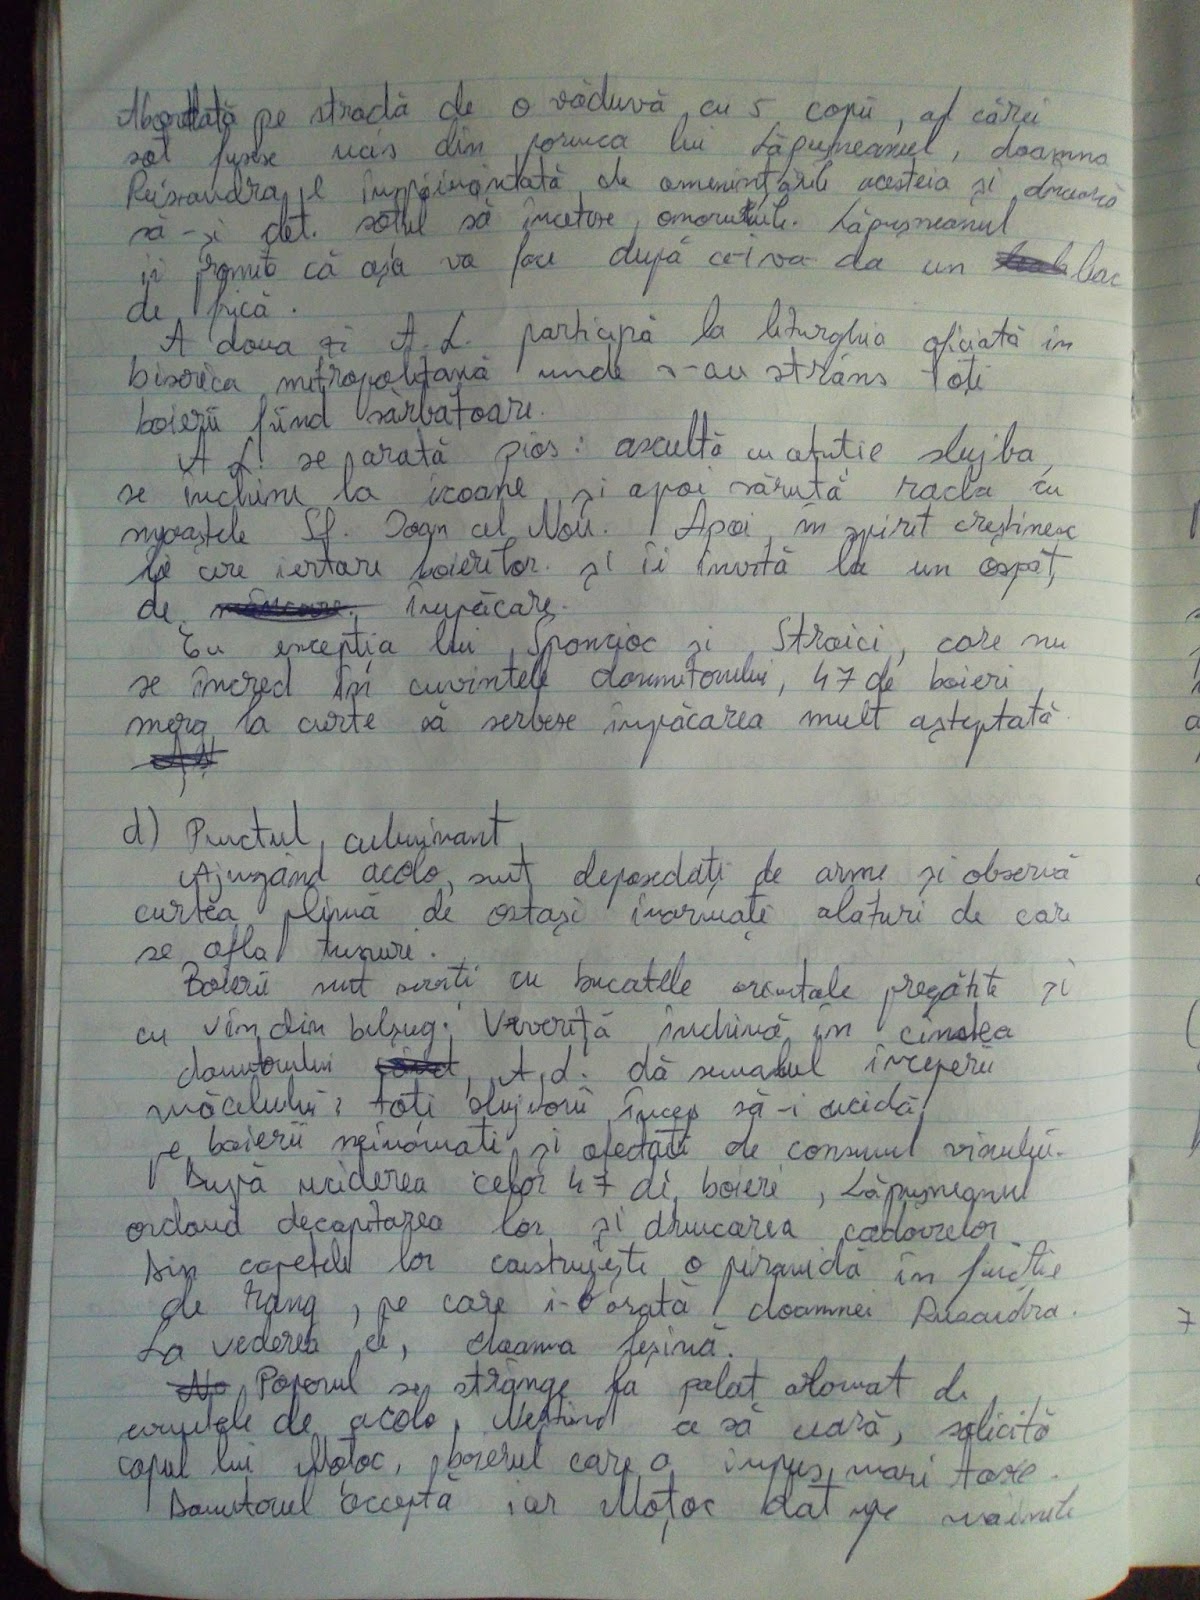 Abordată pe stradă de o văduvă cu 5 copii, al cărei
soț fusese ucis din porunca lui Lăpușneanul, doamna
Ruxandra e înspăimântată de amenințările acesteia și încearcă
să-și det. soțul să înceteze omorurile. Lăpușneanul
îi promite că așa va face după ce-i va da un leac
de frică.
A doua zi A.L. participă la liturghia oficiată în
biserica mitropolitană unde s-au strâns toți
boierii fiind sărbătoare.
A.L. se arată pios: ascultă cu atenție slujba,
se închină la icoane și apoi sărută racla cu
moaștele Sf. Ioan cel Nou. Apoi, în spirit creștinesc
le cere iertare boierilor și îi invită la un ospăț
de împăcare.
Cu excepția lui Spancioc și Stroici, care nu
se încred în cuvintele domnitorului, 47 de boieri
merg la curte să serbeze împăcarea mult așteptată.
d) Punctul culminant
Ajungând acolo, sunt deposedați de arme și observă
curtea plină de ostași înarmați alături de care
se afla tunuri.
Boierii sunt serviți cu bucatele orientale pregătite și
cu vin din belșug. Veveriță închină în cinstea
domnitorului, A.L. dă semnalul începerii
măcelului: toți slujitorii încep să-i ucidă
pe boierii neînarmați și afectați de consumul vinului.
După uciderea celor 47 de boieri, Lăpușneanul
ordonă decapitarea lor și aruncarea cadavrelor
Din capetele lor construiește o piramidă în funcție
de rang, pe care i-o arată doamnei Ruxandra.
La vederea ei, doamna leșină.
Poporul se strânge la palat alarmat de
de acolo. Neștiind ce să ceară, solicită
capul lui Moțoc, boierul care a impus mari taxe.
Domnitorul acceptă iar Moțoc dat pe mâinile